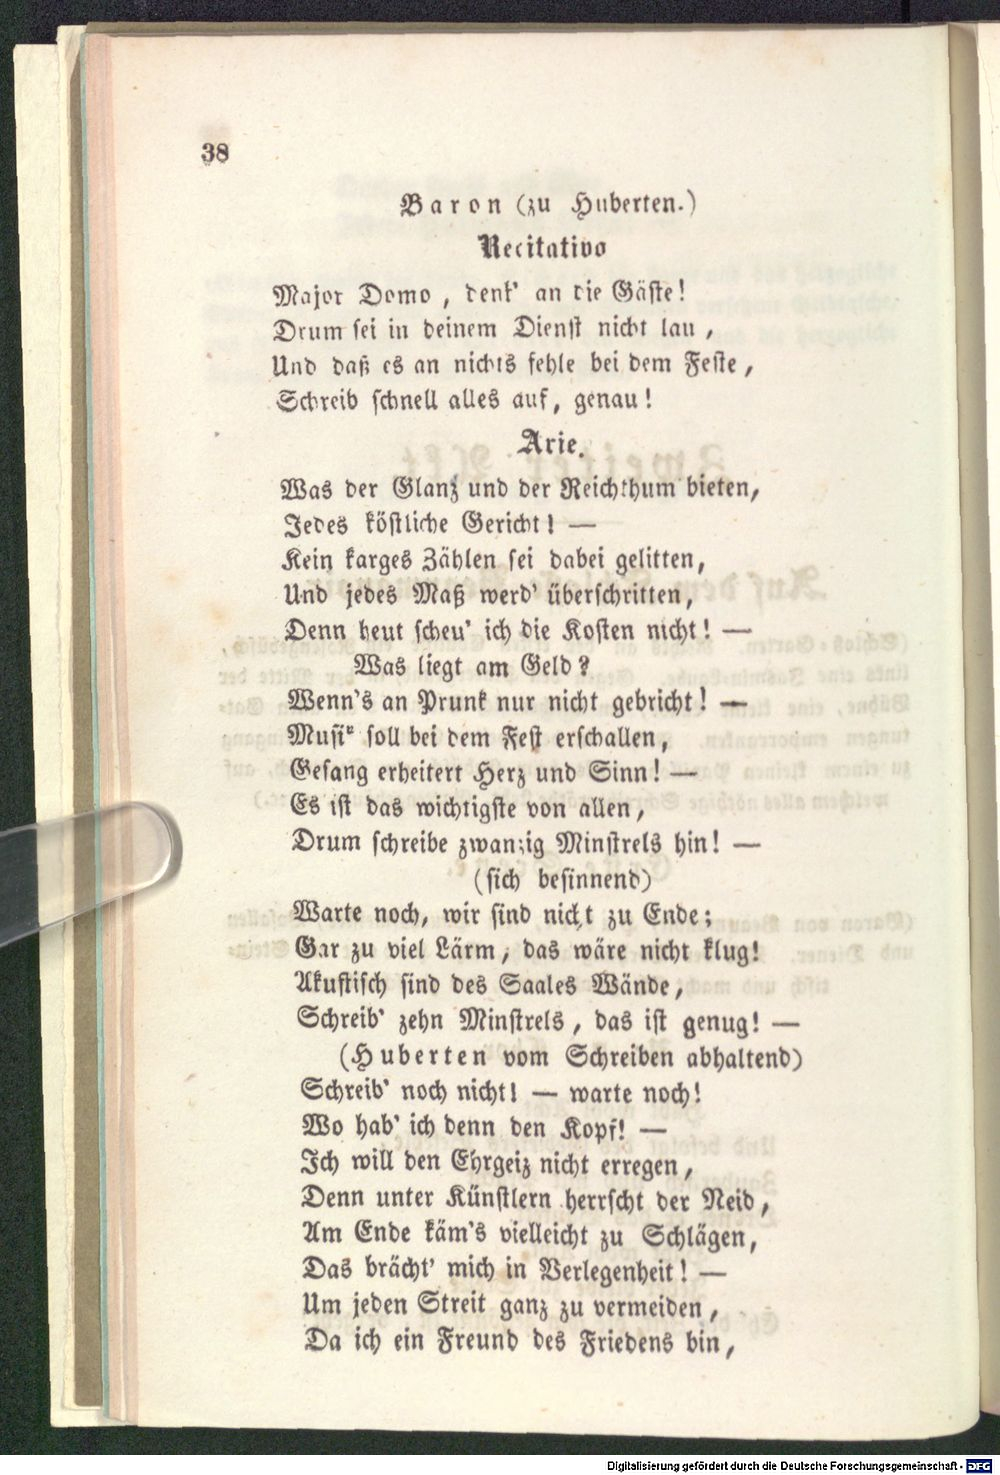 38
Baron (zu Huberten.)
Recitativo
Major Domo, denk' an die Gäste!
Drum sei in deinem Dienst nicht lau,
Und daß es an nichts fehle bei dem Feste,
Schreib schnell alles auf, genau!
Arie.
Was der Glanz und der Reichthum bieten,
Jedes köstliche Gericht! —
Kein karges Zählen sei dabei gelitten,
Und jedes Maß werd' überschritten,
Denn heut scheu' ich die Kosten nicht! —
Was liegt am Geld?
Wenn's an Prunk nur nicht gebricht! —
Musik soll bei dem Fest erschallen,
Gesang erheitert Herz und Sinn! —
Es ist das wichtigste von allen,
Drum schreibe zwanzig Minstrels hin! —
(sich besinnend)
Warte noch, wir sind nicht zu Ende;
Gar zu viel Lärm, das wäre nicht klug!
Akustisch sind des Saales Wände,
Schreib' zehn Minstrels, das ist genug! —
(Huberten vom Schreiben abhaltend)
Schreib' noch nicht! — warte noch!
Wo hab' ich denn den Kopf! —
Ich will den Ehrgeiz nicht erregen,
Denn unter Künstlern herrscht der Neid,
Am Ende käm's vielleicht zu Schlägen,
Das brächt' mich in Verlegenheit! —
Um jeden Streit ganz zu vermeiden,
Da ich ein Freund des Friedens bin,
Digitalisierung gefördert durch die Deutsche Forschungsgemeinschaft - DFG